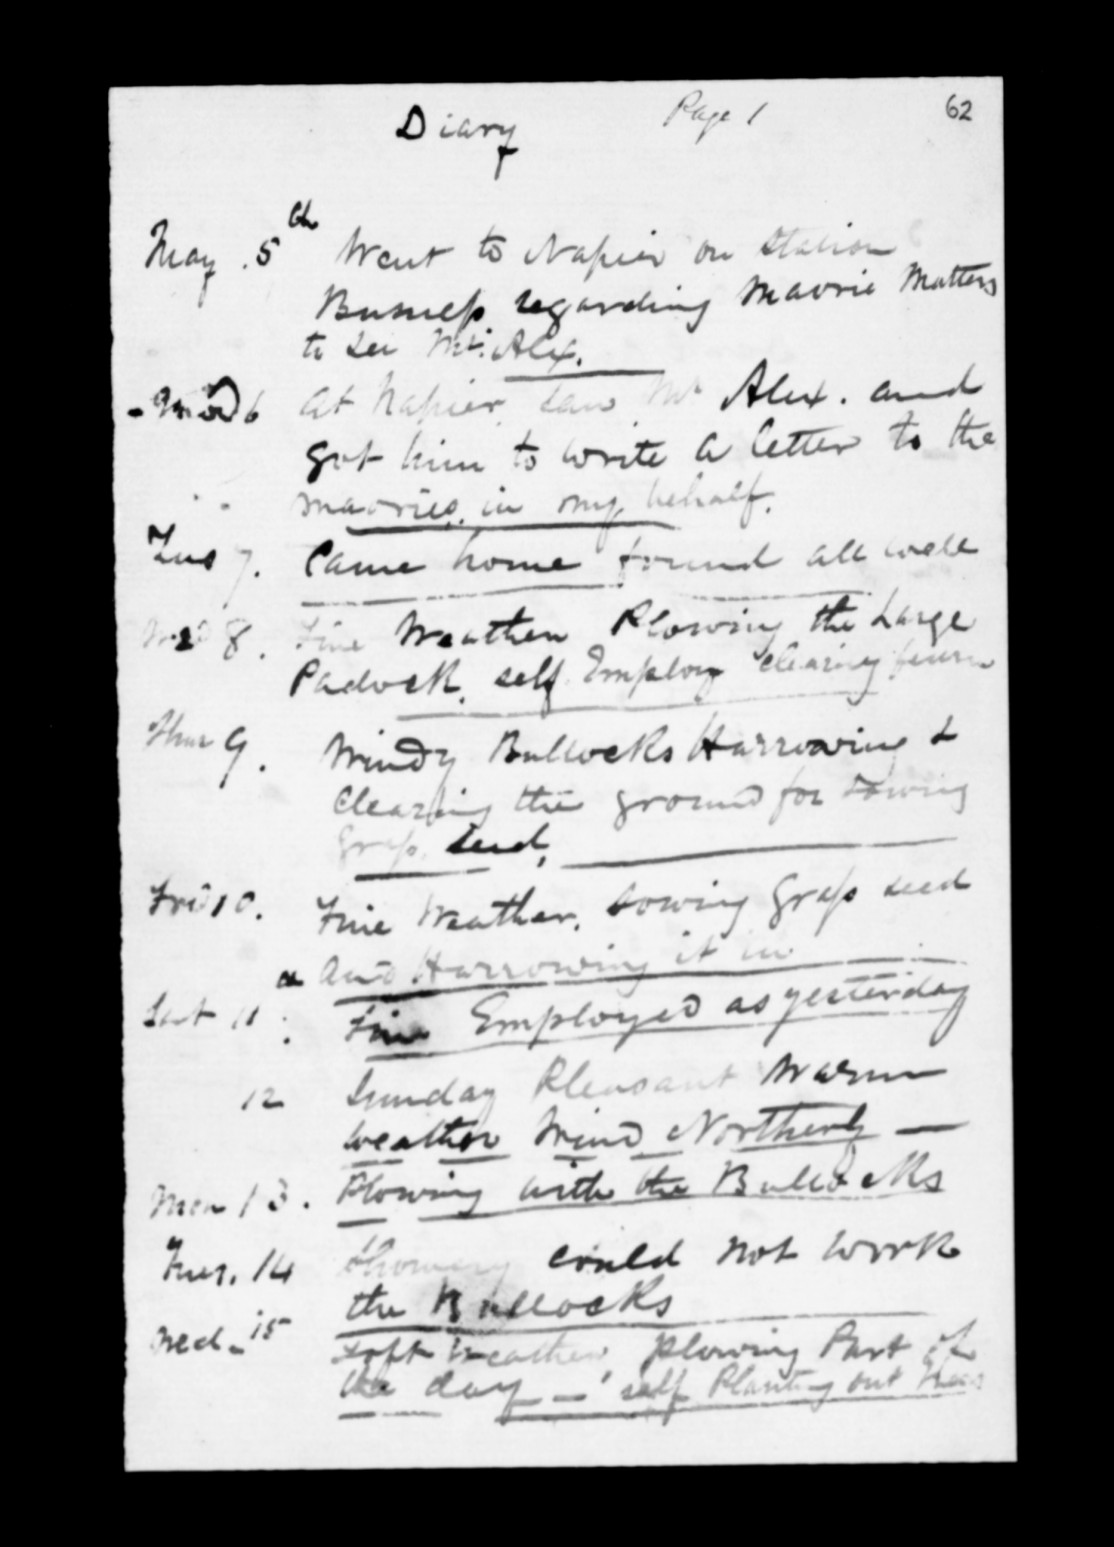 Diary Page 1 62
May 5th Went to Napier on Station
Business regarding Maorie Matters
to see Mr. Alex.
Mod 6 At Napier saw Mr Alex. and
got him to write a letter to the
maories in my behalf.
Tus 7. Came home found all well
Wed 8. Fine Weather Plowing the Large
Padock, self Employ clearing
Thur 9. Windy Bullocks Harrowing &
Clearing the ground for sowing
Grass seed,
Frid 10. Fine Weather, sowing Grass seed
and Harrowing it in
Sat 11. Fine Employed as yesterday
12 Sunday Pleasant Warm
weather Wind Northerly
Mon 13. Plowing with the Bullocks
Tues. 14 Showery could not work
the Bullocks
Wed. 15 Soft Weather, plowing Part of
the day - self Planting out Trees